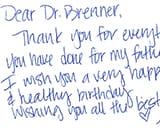 Dear Dr. Brenner,
Thank you for everyt
you have done for my fathe
I wish you a very happ
& healthy birthday
Wishing you all the best